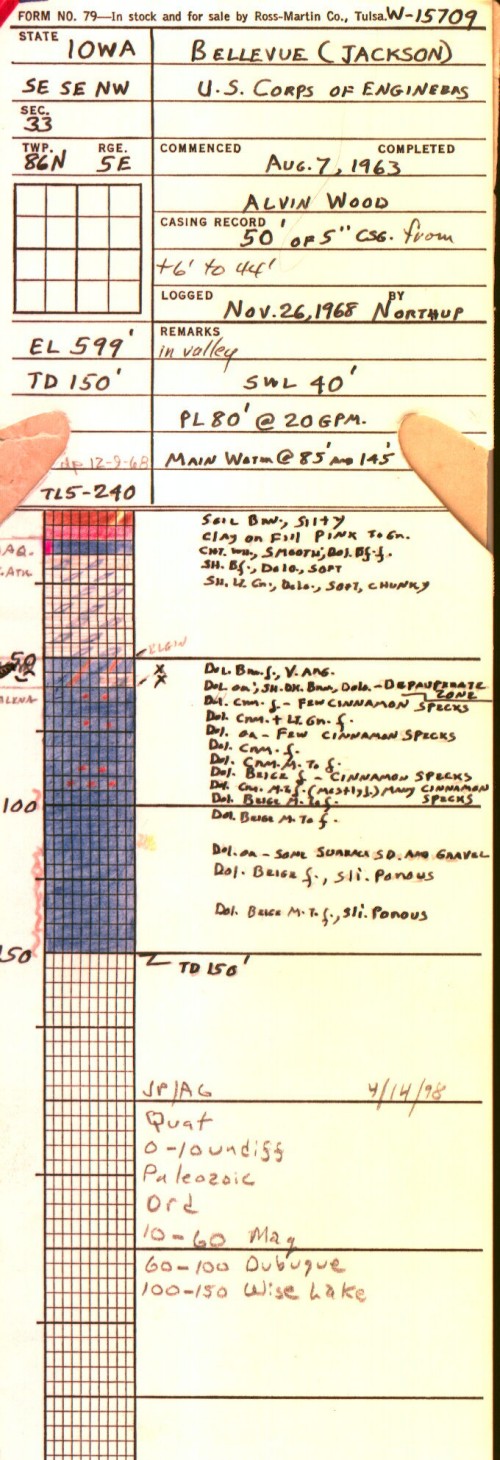 FORM NO. 79—In stock and for sale by Ross-Martin Co., Tulsa. W-15709
STATE IOWA
BELLEVUE (JACKSON)
SE SE NW
U.S. CORPS OF ENGINEERS
SEC. 33
TWP. 86N RGE. 5E
COMMENCED COMPLETED
AUG. 7, 1963
ALVIN WOOD
CASING RECORD 50' OF 5" CSG. from
+6' to 44'
LOGGED NOV. 26, 1968 BY NORTHUP
EL 599'
REMARKS
in valley
TD 150'
SWL 40'
PL 80' @ 20 GPM.
dp 12-9-68
MAIN WATER @ 85' AND 145'
TLS-240
SOIL BRN., SILTY
CLAY OR FILL PINK TO GN.
CHT. WH., SMOOTH, DOL. Bf. f.
SH. Bf., DOLO., SOFT
SH. LT. GN., DOLO., SOFT, CHUNKY
ELGIN
50
X
X
DOL. BRN. f., V. ARG.
DOL. ON, SH. DK. BRN, DOLO. - DEPAUPERATE ZONE
DOL. CRM. f. - FEW CINNAMON SPECKS
DOL. CRM. + LT. GN. f.
DOL. ON - FEW CINNAMON SPECKS
DOL. CRM. f.
DOL. CRM. M. TO f.
DOL. BEIGE f. - CINNAMON SPECKS
DOL. CRM. M.Tf. (MOSTLY f.) MANY CINNAMON SPECKS
DOL. BEIGE M. TO f.
100
DOL. BEIGE M. TO f.
DOL. ON - SOME SURFACE SD. AND GRAVEL
DOL. BEIGE f., SLI. POROUS
DOL. BEIGE M. T. f., SLI. POROUS
50
TD 150'
JP/AG 4/14/98
Quat
0-10 undiff
Paleozoic
Ord
10-60 Maq
60-100 Dubuque
100-150 Wise Lake